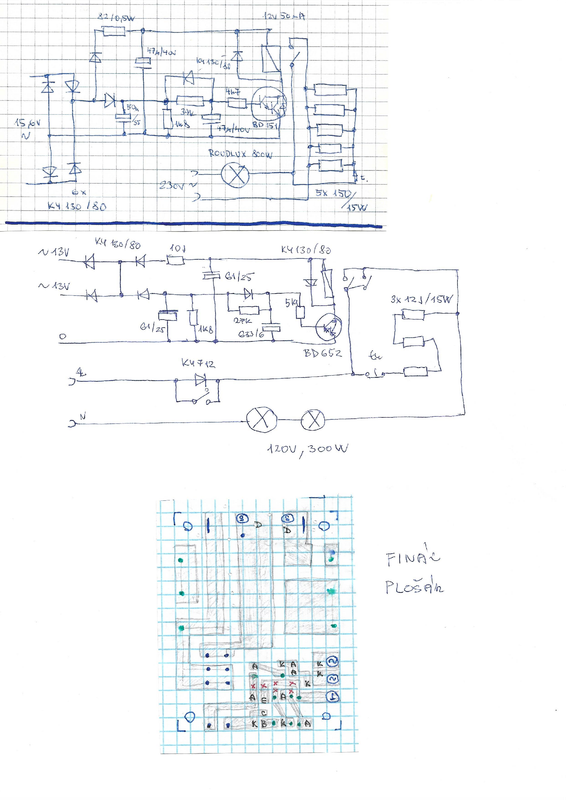 82/0,5W
12V 50mA
47µ/40V
KY130/80
4k7
BD651
1k8
47µ/40V
15,6V
~
ROUDLUX 800W
230V ~
5x 15Ω/
15W
6x
KY 130/80
~13V
KY 130/80
10Ω
KY 130/80
G1/25
~13V
3x 12Ω/15W
G1/25
1K8
27K
G33/6
5k
BD652
0
KY712
tu
N
120V, 300W
FINÁL
PLOŠÁK
D
D
A
K
A
K
A
K
A
K
A
E
C
K
B
K
A